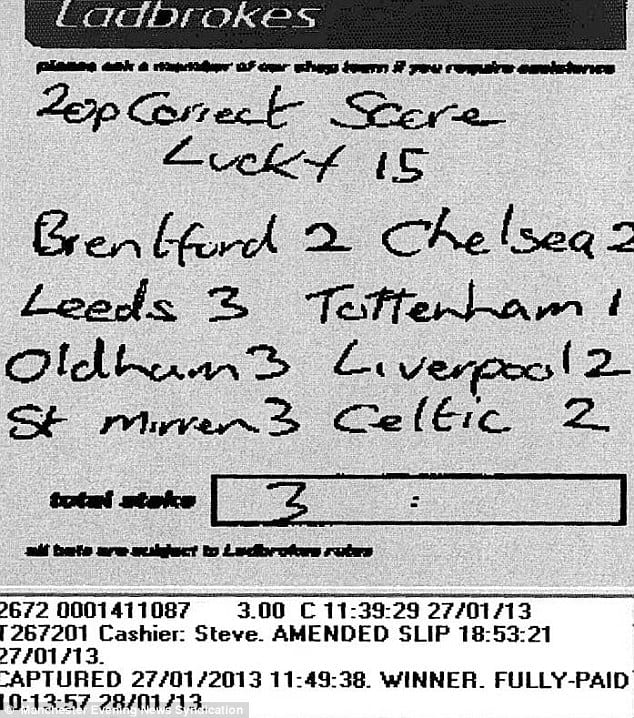 Ladbrokes
please ask a member of our shop team if you require assistance
20p Correct Score
Lucky 15
Brentford 2 Chelsea 2
Leeds 3 Tottenham 1
Oldham 3 Liverpool 2
St Mirren 3 Celtic 2
total stake 3 :
all bets are subject to Ladbrokes rules
2672 0001411087 3.00 C 11:39:29 27/01/13
T267201 Cashier: Steve. AMENDED SLIP 18:53:21
27/01/13.
CAPTURED 27/01/2013 11:49:38. WINNER. FULLY-PAID
10:13:57 28/01/13
© Manchester Evening News Syndication